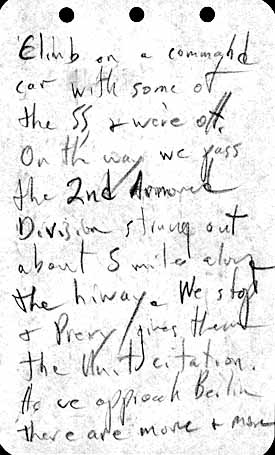 Climb on a command
car with some of
the SS & we're off.
On the way we pass
the 2nd Armored
Division strung out
about 5 miles along
the hiway. We stop
& Prexy gives them
the Unit citation.
As we approach Berlin
there are more & more